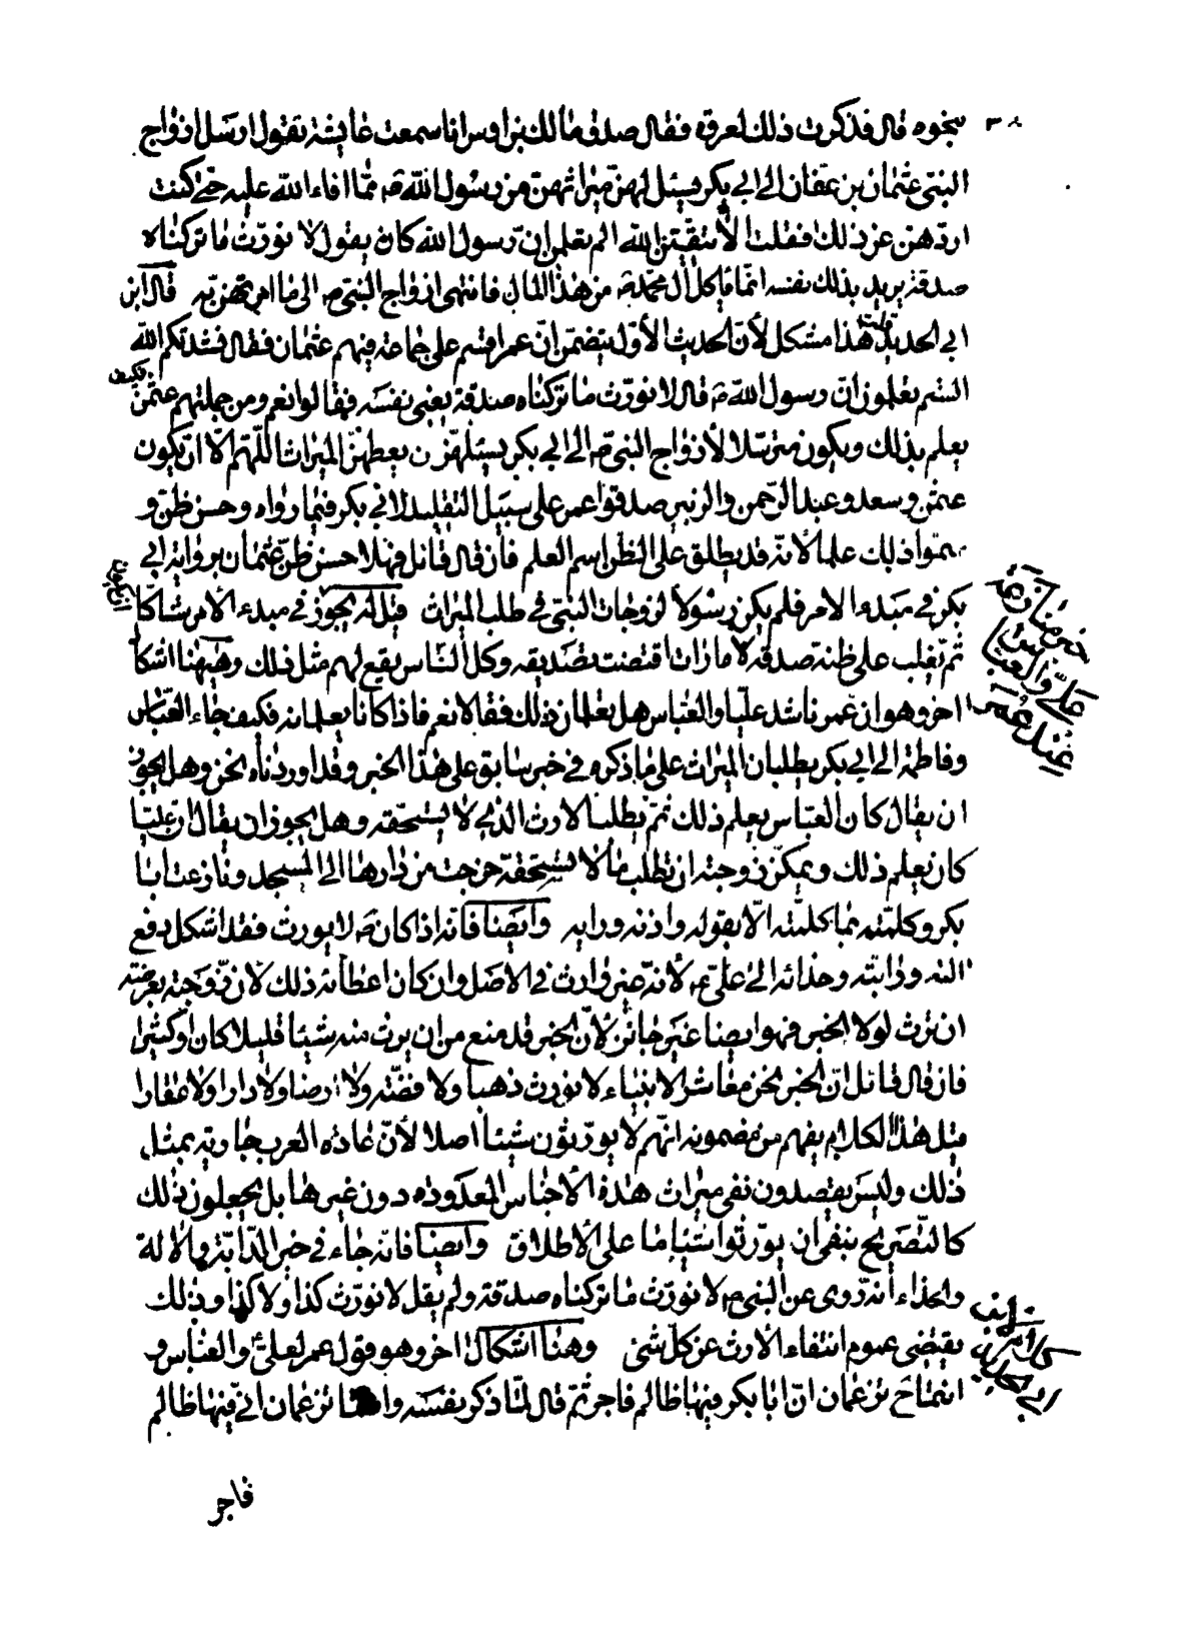 بنحوه قال فذكرت ذلك لعروة فقال صدق مالك بن اوس انا سمعت عايشة تقول ارسل ازواج
النبي عثمان بن عفان الى ابي بكر يسئل لهن ميراثهن من رسول الله ص مما افاء الله عليه حتى كنت
اردهن عن ذلك فقلت الا تتقين الله الم تعلمن ان رسول الله كان يقول لا نورث ما تركناه
صدقة يريد بذلك نفسه انما ياكل ال محمد ص من هذا المال فانتهى ازواج النبي ص الى ما امرتهن به قال ابن
ابي الحديد قلت هذا مشكل لأن الحديث الأول يتضمن ان عمر اقسم على جماعة فيهم عثمان فقال نشدتكم الله
الستم تعلمون ان رسول الله ص قال لا نورث ما تركناه صدقة يعني نفسه فقالوا نعم ومن جملتهم عثمن فكيف
يعلم بذلك ويكون مترسلا لأزواج النبي ص الى ابي بكر يسئله ن يعطهن الميراث اللهم الا ان يكون
عثمن وسعد وعبد الرحمن والزبير صدقوا عمر على سبيل التقليد لابي بكر فيما رواه وحسن ظن و
سموا ذلك علما لانه قد يطلق على الظن اسم العلم فان قال قائل فهلا حسن ظن عثمان برواية ابي
بكر في مبدء الامر فلم يكن رسولا لزوجات النبي في طلب الميراث قيل له يجوز في مبدء الامر شاكا
ثم يغلب على ظنه صدقه لامارات اقتضت تصديقه وكل الناس يقع لهم مثل ذلك وههنا اشكال
اخر وهو ان عمر ناشد عليا والعباس هل يعلمان ذلك فقالا نعم فاذا كانا يعلمانه فكيف جاء العباس
وفاطمة الى ابي بكر يطلبان الميراث على ما ذكره في خبر سابق على هذا الخبر وقد اوردناه نحن وهل يجوز
ان يقال كان العباس يعلم ذلك ثم يطلب الارث الذي لا يستحقه وهل يجوز ان يقال ان عليا
كان يعلم ذلك ويمكن زوجته ان تطلب ما لا تستحقه خرجت من دارها الى المسجد ونازعت ابا
بكر وكلمته بما كلمته الا بقوله واذنه ورايه وايضا فانه اذا كان ص لا يورث فقد اشكل دفع
الته ودابته وحذائه الى علي ع لانه غير وارث في الاصل وان كان اعطائه ذلك لان زوجته بعرضة
ان ترث لولا الخبر فهو ايضا غير جائز لأن الخبر قد منع من ان يرث منه شيئا قليلا كان او كثيرا
فان قال قائل ان الخبر نحن معاشر الانبياء لا نورث ذهبا ولا فضة ولا ارضا ولا دارا ولا عقارا
قيل هذا الكلام يفهم من مضمونه انهم لا يورثون شيئا اصلا لأن عادة العرب جارية بمثل
ذلك وليس يقصدون نفي ميراث هذه الأجناس المعدودة دون غيرها بل يجعلون ذلك
كالتصريح بنفي ان يورثوا شيئا ما على الأطلاق وايضا فانه جاء في خبر الدابة والالة
والحذاء انه روى عن النبي ص لا نورث ما تركناه صدقة ولم يقل لا نورث كذا ولا كذا وذلك
يقتضي عموم انتفاء الأرث عن كل شئ وهنا اشكال اخر وهو قول عمر لعلي ع والعباس و
انتما ح تزعمان ان ابا بكر فيها ظالم فاجر ثم قال لما ذكر نفسه وانتما تزعمان اني فيها ظالم
فاجر
خبر منازعة
علي والعباس
عند عمر
كلام ابن
ابي الحديد